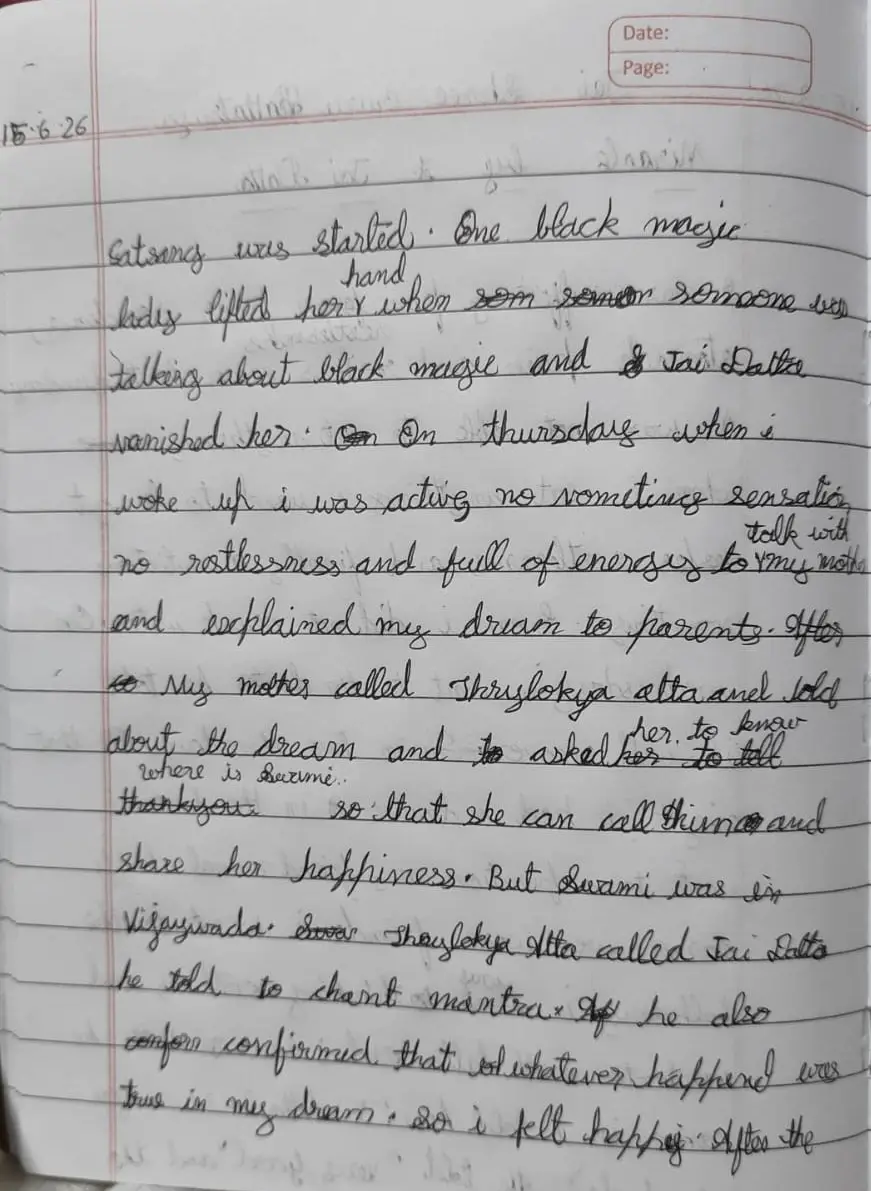 Date:
Page:
15.6.26
Satsang was started. One black magic
hand
lady lifted her when someone was
talking about black magic and Jai Datta
vanished her. On thursday when i
woke up i was active, no vometing sensation
talk with
no restlessness and full of energy to my mother
and explained my dream to parents.
My mother called Thrylokya atta and told
her to know
about the dream and asked
where is Swami..
so that she can call him and
share her happiness. But Swami was in
Vijaywada. Thrylokya Atta called Jai Datta
he told to chant mantra. he also
confirmed that whatever happend was
true in my dream. So i felt happy. After the